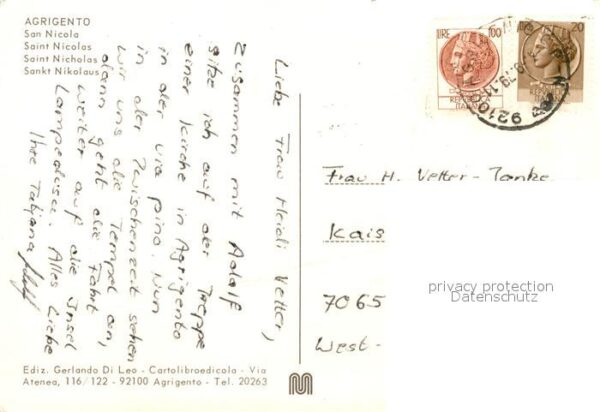 AGRIGENTO
San Nicola
Saint Nicolas
Saint Nicholas
Sankt Nikolaus
Liebe Frau Heidi Vetter,
Zusammen mit Adolf
sitze ich auf der Treppe
einer Kirche in Agrigento
in der via pino. Nun
in der Zwischenzeit sehen
wir uns die Tempel an,
dann geht die Fahrt
weiter auf die Insel
Lampedusa. Alles Liebe
Ihre Tatjana
LIRE 100
20
92100
Frau H. Vetter-
Kais
7065
West-
privacy protection
Datenschutz
Ediz. Gerlando Di Leo - Cartolibroedicola - Via
Atenea, 116/122 - 92100 Agrigento - Tel. 20263